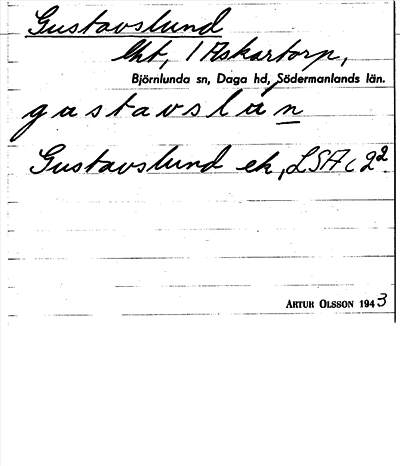 Gustavslund
lht, 1 Askartorp,
Björnlunda sn, Daga hd, Södermanlands län.
gustavslun
Gustavslund ek, LSA c 22.
ARTUR OLSSON 1943